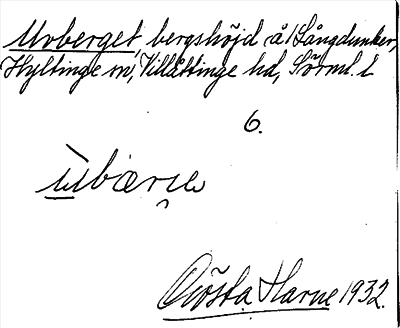 Uvberget, bergshöjd å/Långdunker,
Hyltinge sn, Villåttinge hd, Sörml. l
6.
ùbærıe
Gösta Harne 1932.